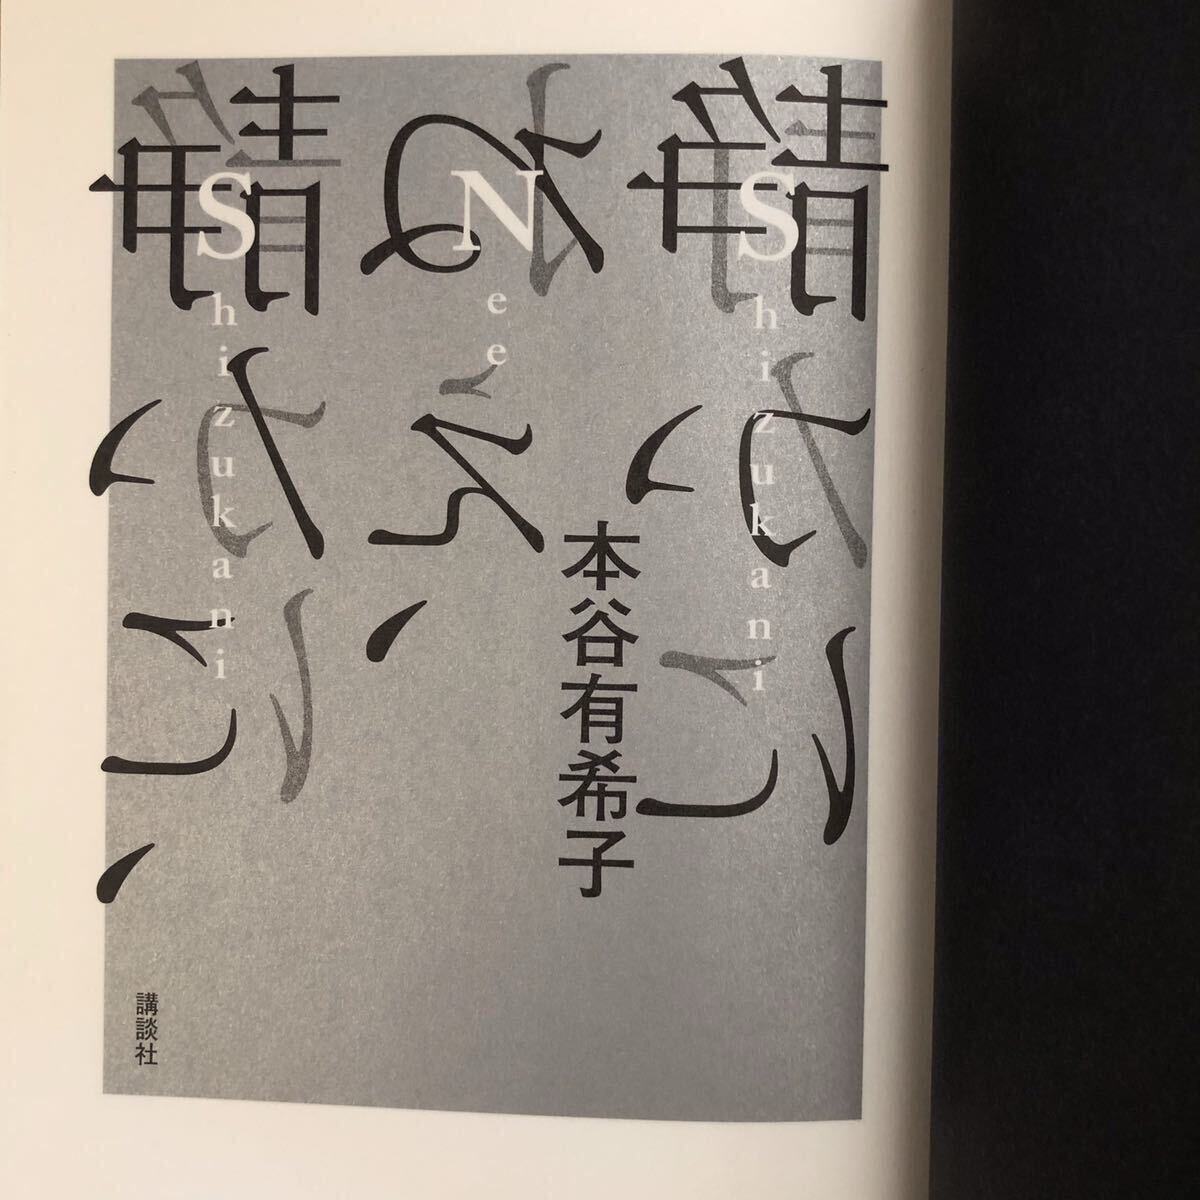 静かに、
ねえ、
静かに
Shizukani
Nee
Shizukani
本谷有希子
講談社